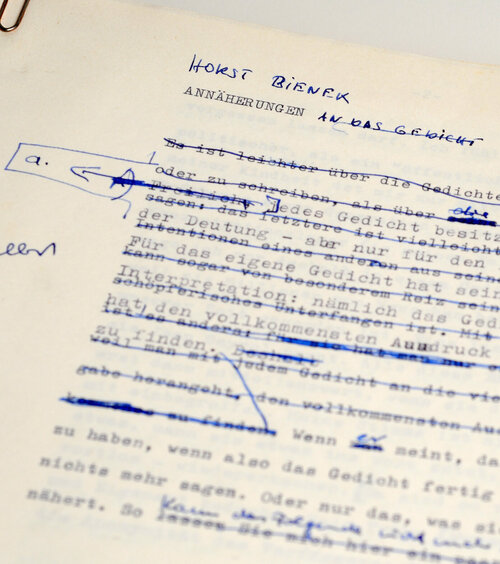 HORST BIENEK
ANNÄHERUNGEN AN DAS GEDICHT
Es ist leichter über die Gedichte
a.
oder zu schreiben, als über die
Freilich: Jedes Gedicht besitz
sagen; das letztere ist vielleicht
der Deutung - abr nur für den
Intentionen eines anderen aus seine
Für das eigene Gedicht hat sein
kann sogar von besonderem Reiz sein
Interpretation: nämlich das Ged
schöpferisches Unterfangen ist. Mit
hat den vollkommensten Ausdruck
ist es anders:
zu finden.
weil man mit jedem Gedicht an die vie
gabe herangeht, den vollkommensten Aus
zu finden. Wenn er meint, da
zu haben, wenn also das Gedicht fertig
nichts mehr sagen. Oder nur das, was si
nähert. So lassen Sie mich hier ein